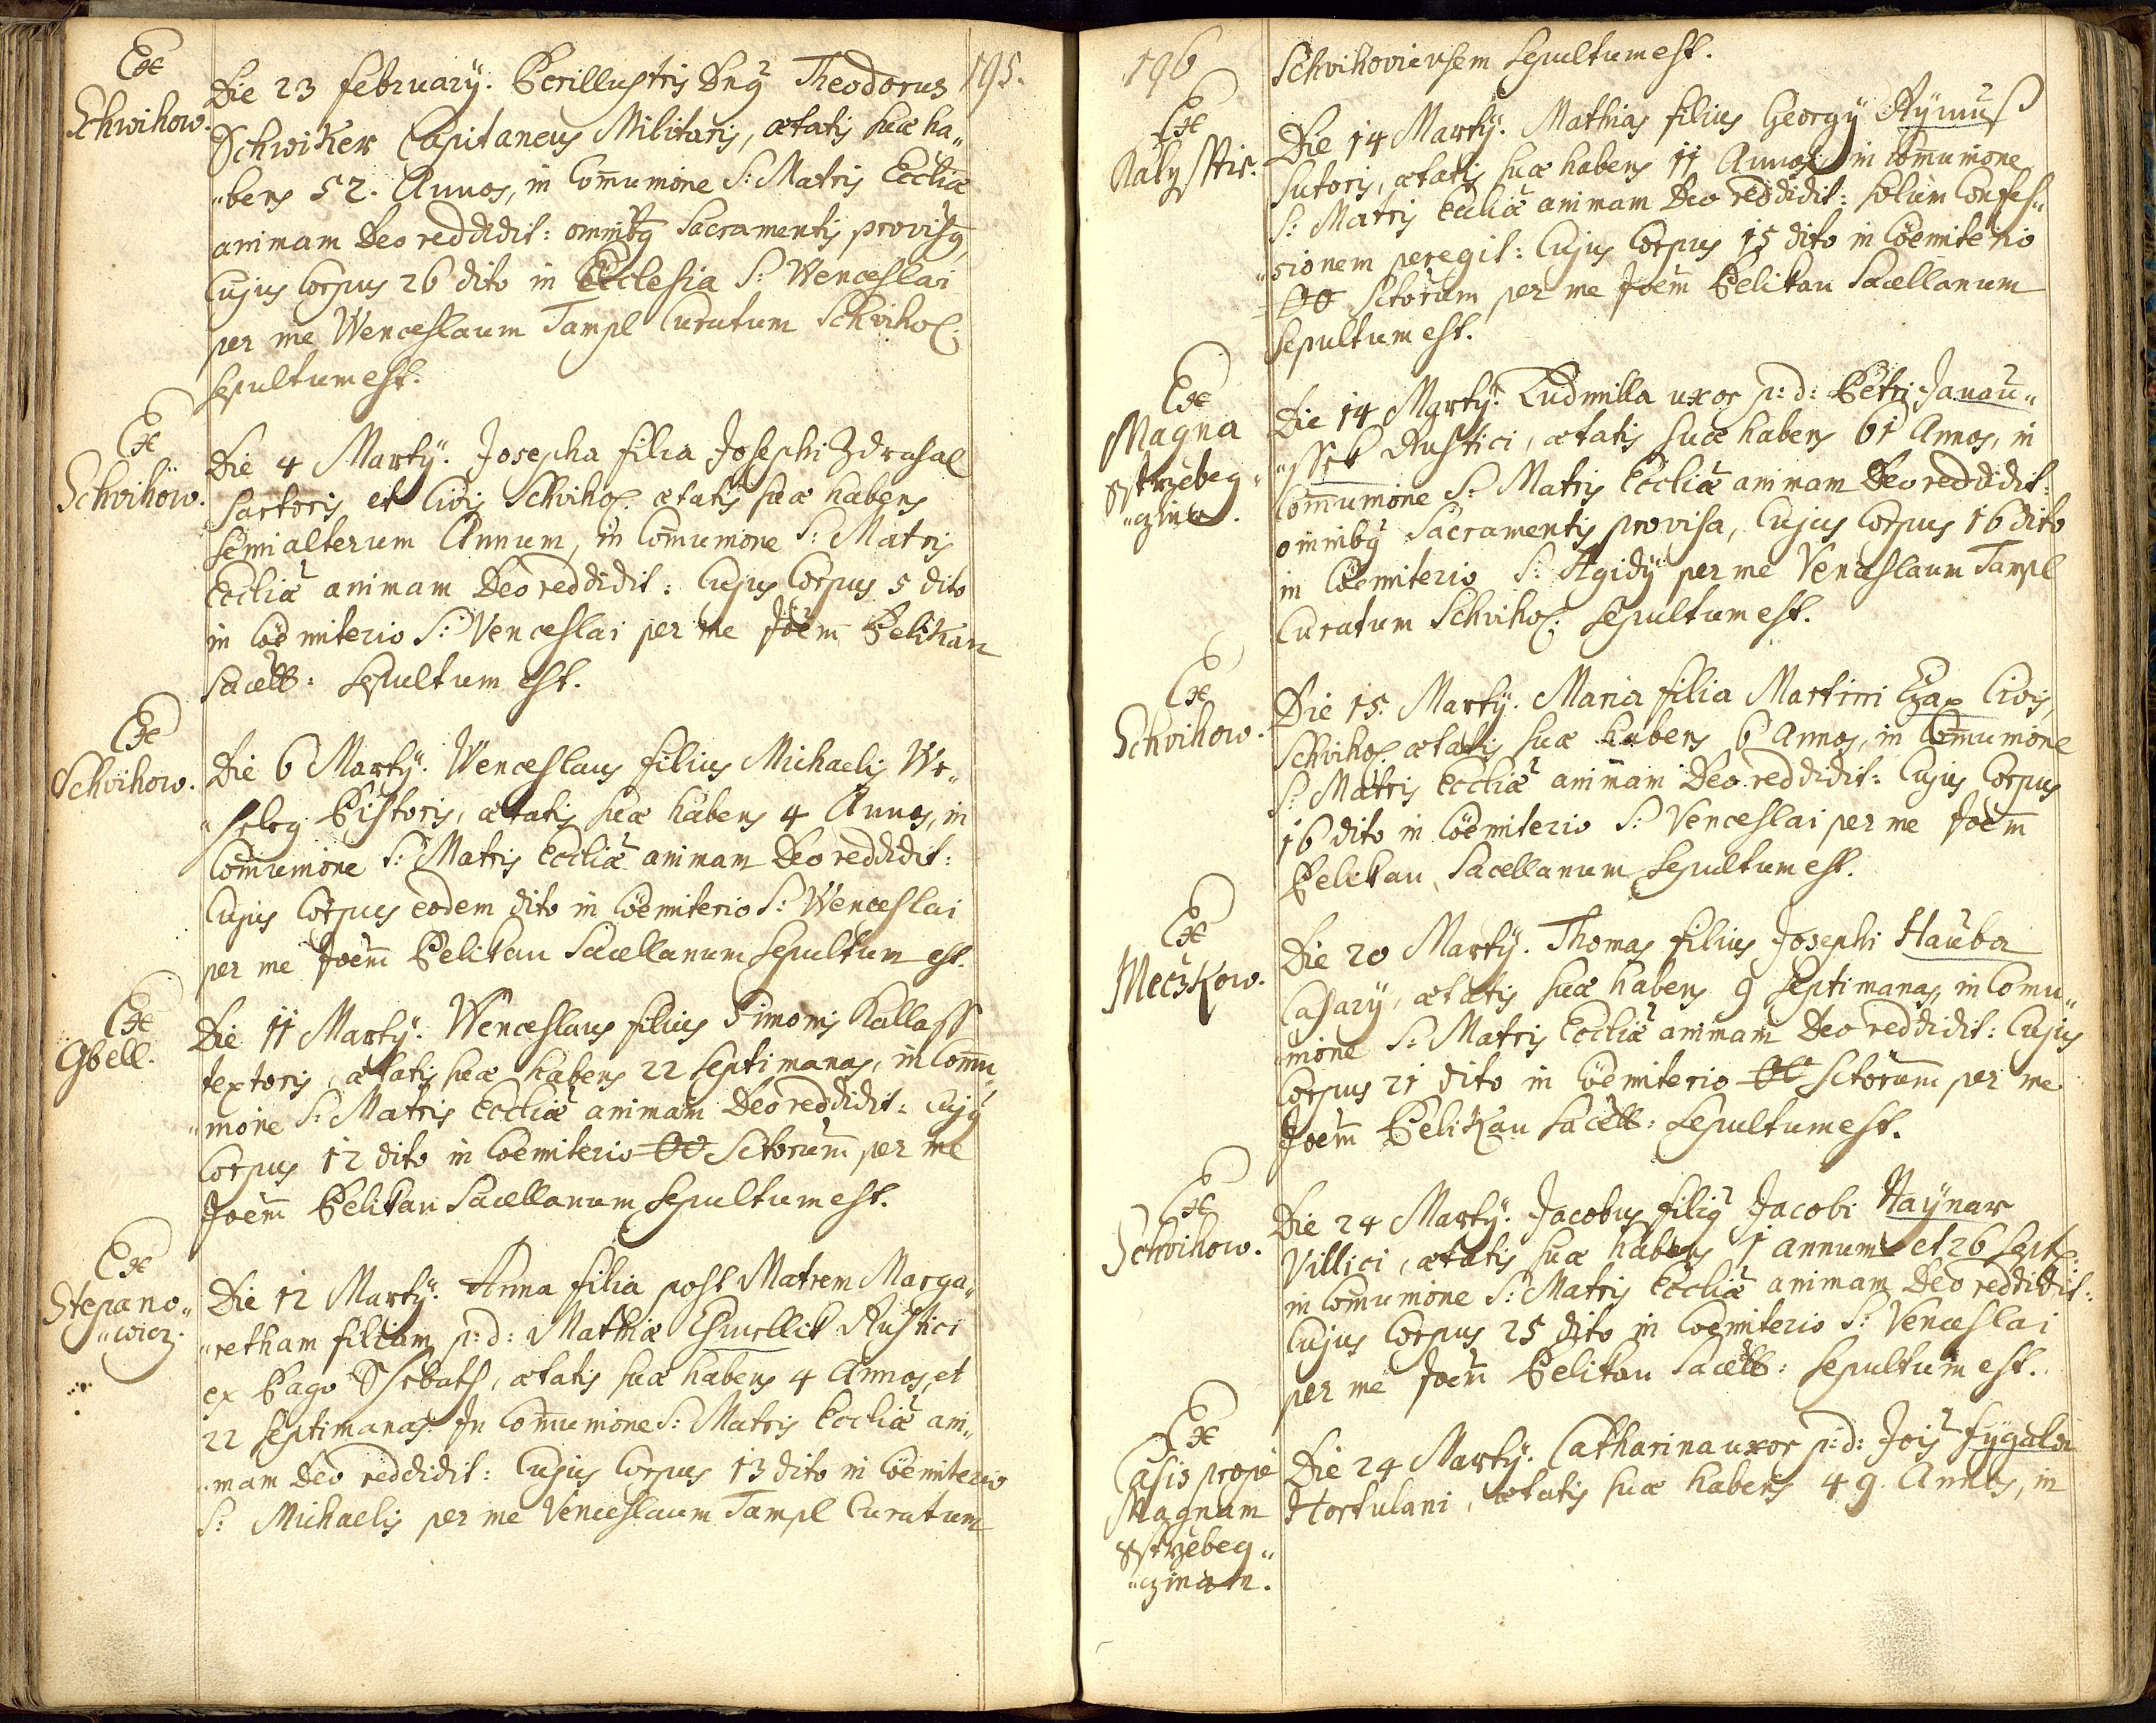 195.
Ex
Schwihow.
Die 23 February. Perillustris Dnus Theodorus
Schwiker Capitaneus Militaris, ætatis suæ ha„
„bens 52. Annos, in Com̄unione S: Matris Eccliæ
animam Deo reddidit: omnibus Sacramentis provisus,
Cujus Corpus 26 dito in Ecclesia S: Wenceslai
per me Wenceslaum Tampl Curatum Schviho:
sepultum est.
Ex
Schvihow.
Die 4 Martÿ. Josepha filia Josephi Zdrasal
Sartoris et Civis Schviho: ætatis suæ habens
semialterum Annum, in Com̄unione S: Matris
Eccliæ animam Deo reddidit: Cujus Corpus 5 dito
in Cöemiterio S: Venceslai per me Joem̄ Pelikan
Sacell: sepultum est.
Ex
Schvihow.
Die 6 Martÿ. Wenceslaus filius Michaelis
Pistoris, ætatis suæ habens 4 Annos, in
Com̄unione S: Matris Eccliæ animam Deo reddidit:
Cujus Corpus eodem dito in Cöemiterio S: Wenceslai
per me Joem̄ Pelikan Sacellanum sepultum est.
Ex
Gbell.
Die 11 Martÿ. Wenceslaus filius Simonis Kallass
textoris, ætatis suæ habens 22 septimanas, in Com̄u„
„nione S: Matris Eccliæ animam Deo reddidit: cujus
Corpus 12 dito in Cöemiterio OO Sctorum̄ per me
Joem̄ Pelikan Sacellanum sepultum est.
Ex
Stepano„
„wicz.
Die 12 Martÿ. Anna filia post Matrem Marga„
„retham filiam p: d: Mathiæ Chmellik Rustici
ex Pago, ætatis suæ habens 4 Annos, et
22 septimanas. In Com̄unione S: Matris Eccliæ ani„
„mam Deo reddidit: Cujus Corpus 13 dito in Cöemiterio
S: Michaelis per me Venceslaum Tampl Curatum
196
Schvihoviensem sepultum est.
Ex
Kaly
Die 14 Martÿ. Mathias filius Georgÿ Rÿmuß
Sutoris, ætatis suæ habens 11 Annos, in Com̄unione
S: Matris Eccliæ animam Deo reddidit: solum Confes„
„sionem peregit: Cujus Corpus 15 dito in Cöemiterio
OO Sctorum per me Joem̄ Pelikan Sacellanum
sepultum est.
Ex
Magna
Sstrzebeg„
„czina.
Die 14 Martÿ. Ludmilla uxor p: d: Petri Janau„
„ssek Rustici, ætatis suæ habens 61 Annos, in
Com̄unione S: Matris Eccliæ animam Deo reddidit:
omnibus Sacramentis provisa, Cujus Corpus 16 dito
in Cöemiterio S: Ægidÿ per me Venceslaum Tampl
Curatum Schviho: sepultum est.
Ex
Schvihow.
Die 15. Martÿ. Maria filia Martini Czap Civis
Schviho: ætatis suæ habens 6 Annos, in Com̄unione
S: Matris Eccliæ animam Deo reddidit: Cujus Corpus
16 dito in Cöemiterio S: Venceslai per me Joem̄
Pelikan Sacellanum sepultum est.
Ex
Meczkow.
Die 20 Martÿ. Thomas filius Josephi Hauba
Casarÿ, ætatis suæ habens 9 septimanas, in Comu„
„nione S: Matris Eccliæ animam Deo reddidit: Cujus
Corpus 21 dito in Cöemiterio OO Sctorum̄ per me
Joem̄ Pelikan Sacell: sepultum est.
Ex
Schvihow.
Die 24 Martÿ. Jacobus filius Jacobi Haÿnar
Villici, ætatis suæ habens 1 annum et 26 Sept:
in Com̄unione S: Matris Eccliæ animam Deo reddidit:
Cujus Corpus 25 dito in Coemiterio S: Venceslai
per me Joem̄ Pelikan Sacell: sepultum est.
Ex
Casis prope
Magnam
Sstrzebeg„
„czinam.
Die 24 Martÿ. Catharina uxor p: d: Jois Fÿgula
Hortulani, ætatis suæ habens 49 Annos, in